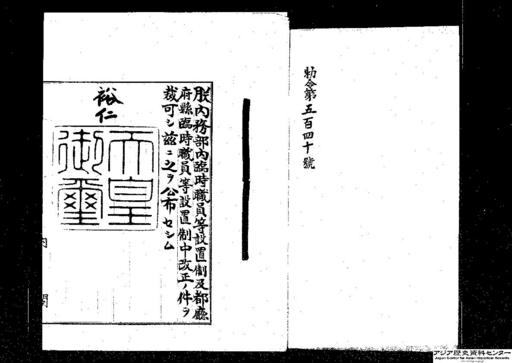 勅令第五百四十號
朕內務部內臨時職員等設置制及都廳
府縣臨時職員等設置制中改正ノ件ヲ
裁可シ茲ニ之ヲ公布セシム
裕仁
天皇
御璽
アジア歴史資料センター
Japan Center for Asian Historical Records